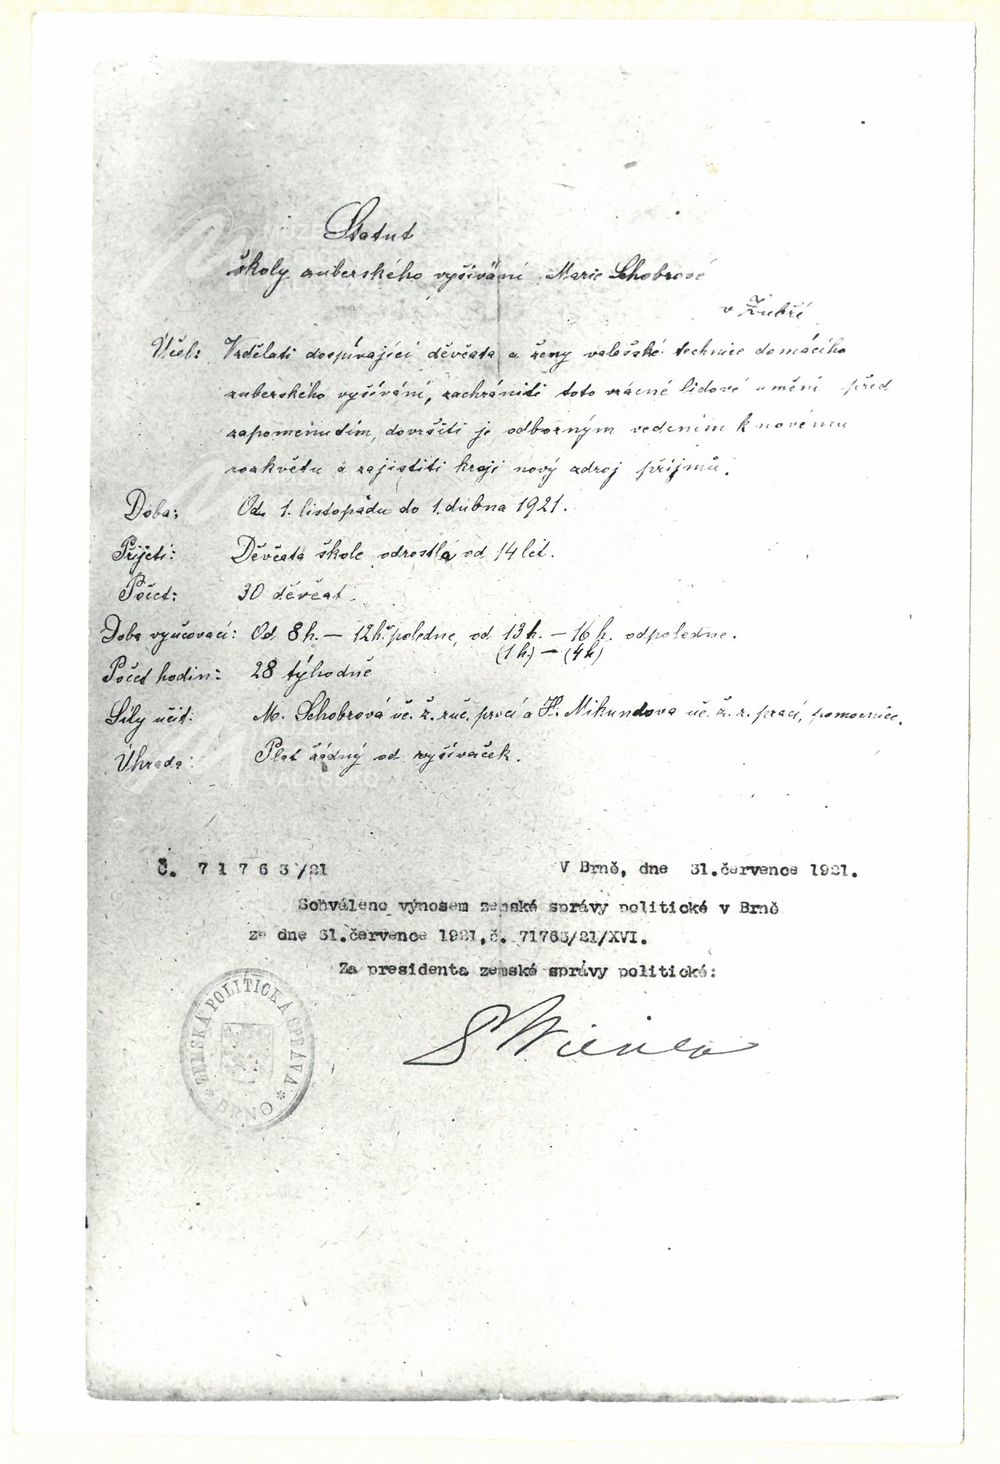 Statut
školy zuberského vyšívání Marie Schobrové
v Zubří
Účel: Vzdělati dospívající děvčata a ženy valašské technice domácího
zuberského vyšívání, zachrániti toto vzácné lidové umění před
zapomenutím, dovršiti je odborným vedením k novému
rozkvětu a zajistiti kraji nový zdroj příjmů.
Doba: Od 1. listopadu do 1. dubna 1921.
Přijetí: Děvčata škole odrostlá od 14 let.
Počet: 30 děvčat.
Doba vyučovací: Od 8 h. — 12 h. poledne, od 13 h. — 16 h. odpoledne.
(1 h.) — (4 h)
Počet hodin: 28 týhodně
Síly učit: M. Schobrová uč. ž. ruč. prací a F. Mikundova uč. ž. r. prací, pomocnice.
Úhrada: Plat žádný od vyšívaček.
Č. 7 1 7 6 3 /21 V Brně, dne 31.července 1921.
Schváleno výnosem zemské správy politické v Brně
ze dne 31.července 1921,č. 71763/21/XVI.
Za presidenta zemské správy politické:
ZEMSKÁ POLITICKÁ SPRÁVA
* BRNO *